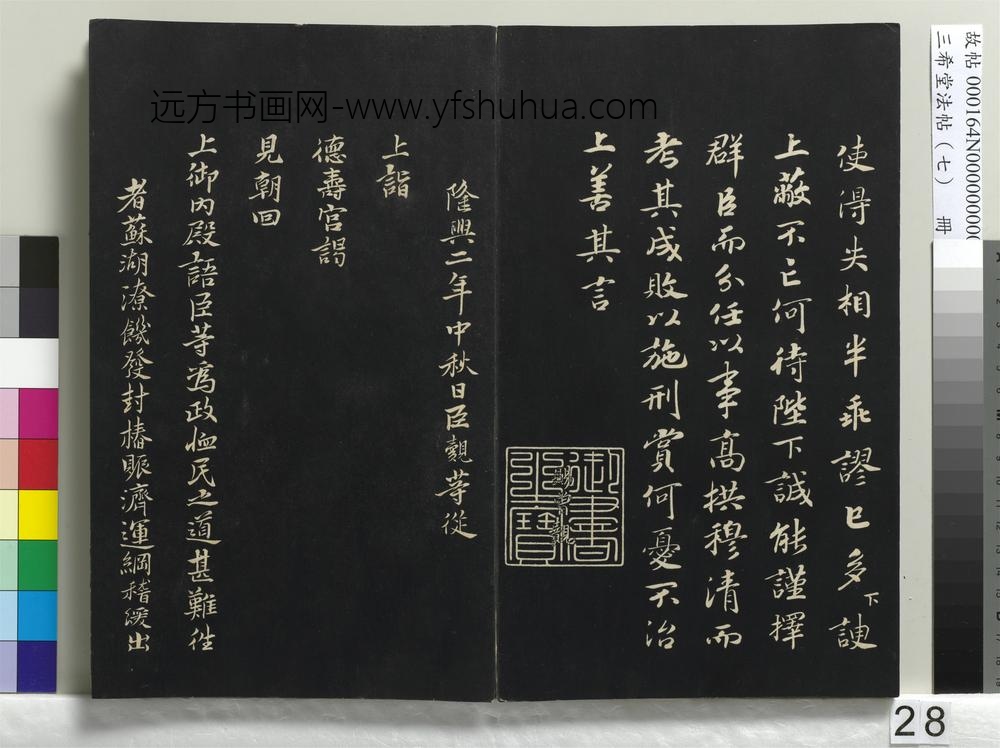 使得失相半乖謬已多下諛
上蔽不亡何待陛下誠能謹擇
群臣而分任以事高拱穆清而
考其成敗以施刑賞何憂不治
上善其言
御書
之寶
賜曾覿
隆興二年中秋日臣覿等從
上詣
德壽宮謁
見朝回
上御內殿語臣等為政恤民之道甚難往
者蘇湖潦饑發封樁賑濟運綱稽緩出
远方书画网-www.yfshuhua.com
故帖 000164N00000000
三希堂法帖(七) 冊
28